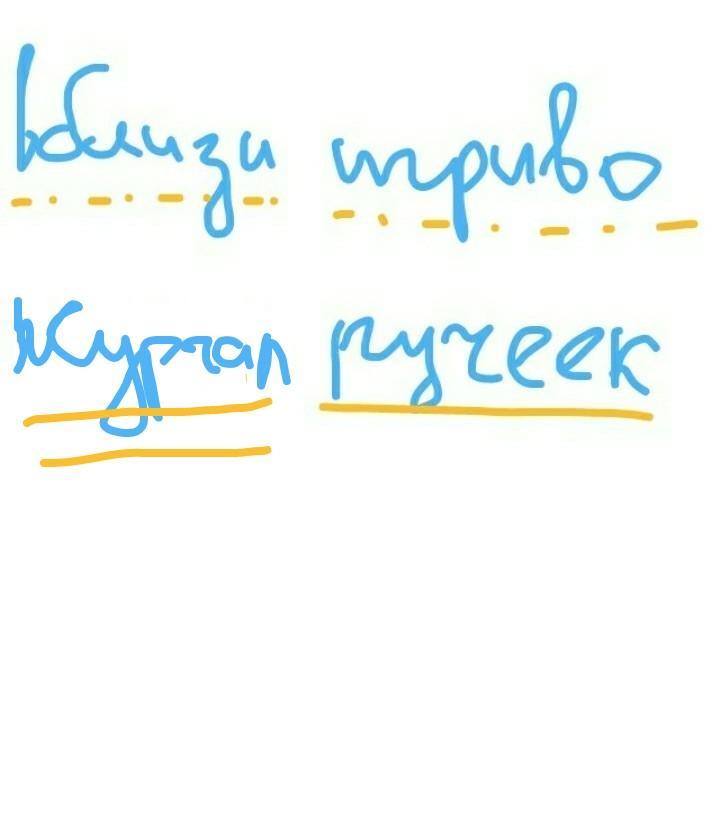 вблизи игриво
журчал ручеек